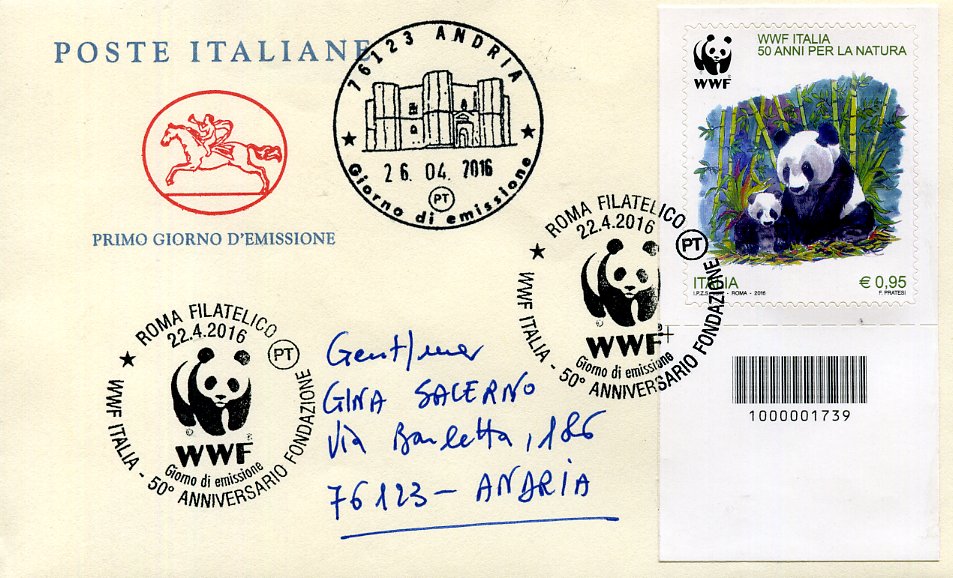 POSTE ITALIANE
PRIMO GIORNO D'EMISSIONE
76123 ANDRIA
26.04.2016
PT
Giorno di emissione
WWF ITALIA
50 ANNI PER LA NATURA
WWF
ITALIA
€ 0,95
I.P.Z.S. - ROMA - 2016
F. PRATESI
ROMA FILATELICO
22.4.2016
PT
©
WWF
Giorno di emissione
WWF ITALIA - 50° ANNIVERSARIO FONDAZIONE
ROMA FILATELICO
22.4.2016
PT
©
®
WWF
Giorno di emissione
WWF ITALIA - 50° ANNIVERSARIO FONDAZIONE
GINA SALERNO
Via Barletta, 186
76123 - ANDRIA
1000001739